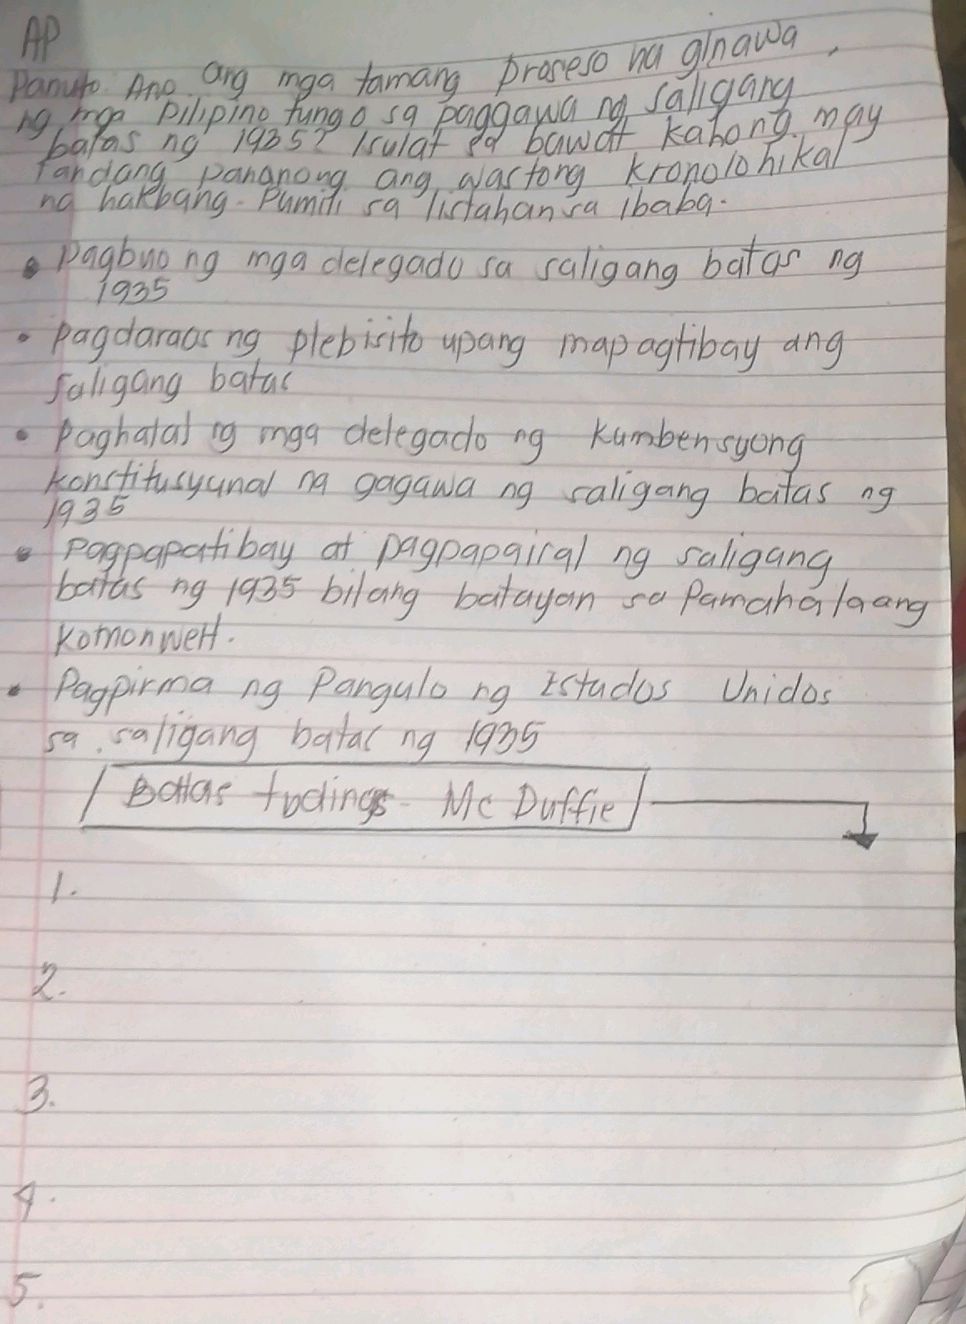 AP
Panuto. Ano ang mga tamang proseso na ginawa
ng mga Pilipino tungo sa paggawa ng saligang
batas ng 1935? Isulat sa bawat kahong may
tandang pananong ang wastong kronolohikal
na hakbang. Pumili sa listahan sa ibaba.
• Pagbuo ng mga delegado sa saligang batas ng
1935
• Pagdaraos ng plebisito upang mapagtibay ang
saligang batas
• Paghalal ng mga delegado ng Kumbensyong
Konstitusyunal na gagawa ng saligang batas ng
1935
• Pagpapatibay at pagpapairal ng saligang
batas ng 1935 bilang batayan sa Pamahalaang
Komonwelt.
• Pagpirma ng Pangulo ng Estados Unidos
sa saligang batas ng 1935
Batas tydings - Mc Duffie
1.
2.
3.
4.
5.